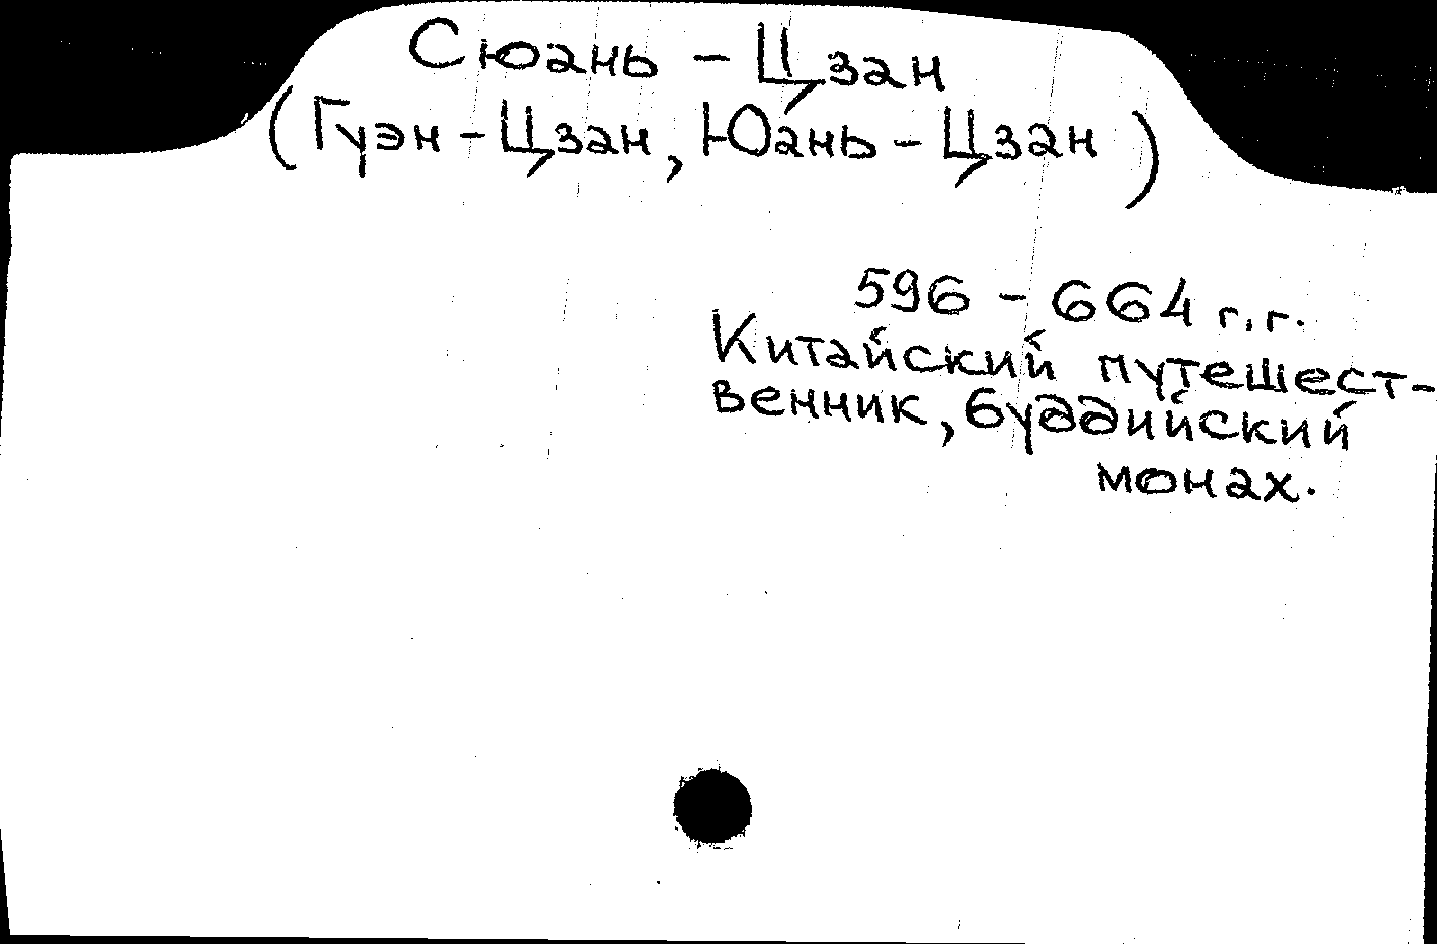 Сюань - Цзан
(Гуэн - Цзан, Юань - Цзан)
596 - 664 г.г.
Китайский путешест-
венник, буддийский
монах.